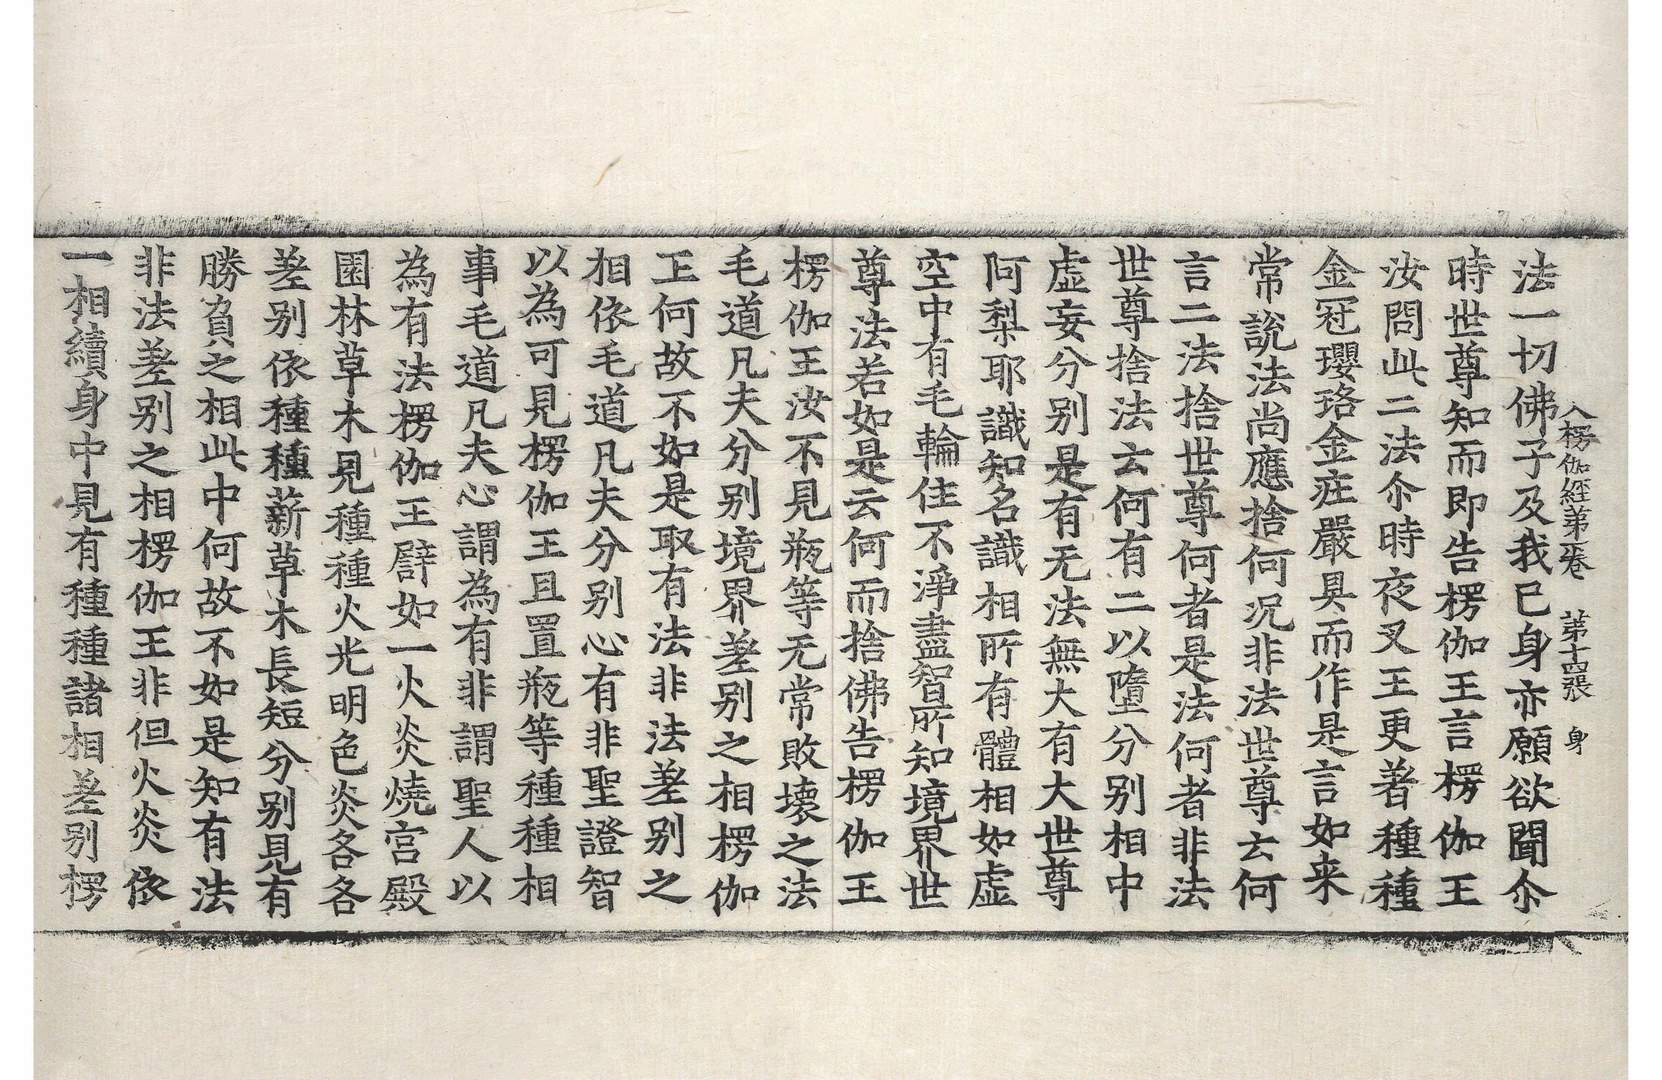 入楞伽經第一卷 第十四張 身
法一切佛子及我已身亦願欲聞尒
時世尊知而即告楞伽王言楞伽王
汝問此二法尒時夜叉王更著種種
金冠瓔珞金莊嚴具而作是言如来
常說法尚應捨何况非法世尊云何
言二法捨世尊何者是法何者非法
世尊捨法云何有二以墮分别相中
虛妄分别是有无法無大有大世尊
阿梨耶識知名識相所有體相如虛
空中有毛輪住不淨盡智所知境界世
尊法若如是云何而捨佛告楞伽王
楞伽王汝不見瓶等无常敗壞之法
毛道凡夫分别境界差别之相楞伽
王何故不如是取有法非法差别之
相依毛道凡夫分别心有非聖證智
以為可見楞伽王且置瓶等種種相
事毛道凡夫心謂為有非謂聖人以
為有法楞伽王譬如一火炎燒宫殿
園林草木見種種火光明色炎各各
差别依種種薪草木長短分别見有
勝負之相此中何故不如是知有法
非法差别之相楞伽王非但火炎依
一相續身中見有種種諸相差别楞